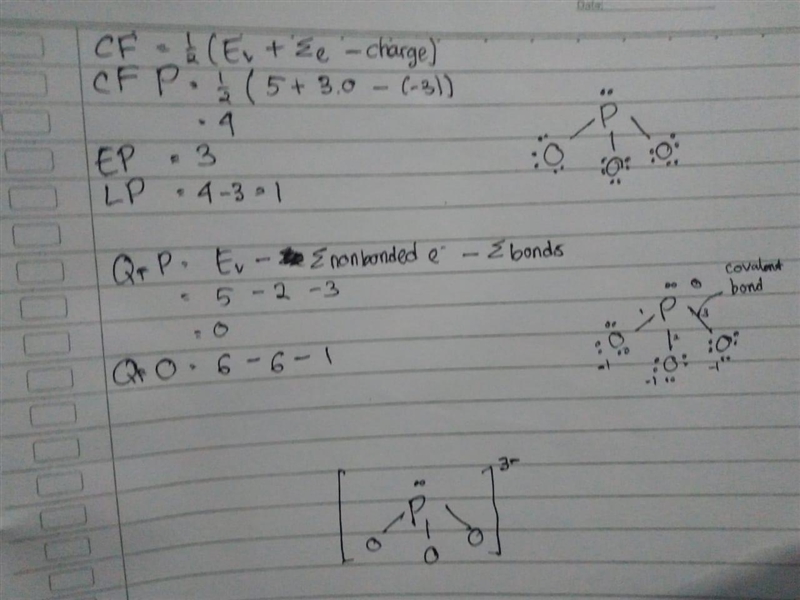 Date:
CF = 1/2 (Ev + Σe - charge)
CF P = 1/2 (5 + 3.0 - (-3))
= 4
EP = 3
LP = 4 - 3 = 1
P
O O O
QF P = Ev - Σ nonbonded e⁻ - Σ bonds
= 5 - 2 - 3
= 0
QF O = 6 - 6 - 1
covalent
bond
P 0
1 2 3
O O O
-1 -1 -1
[P 3-
O O O]